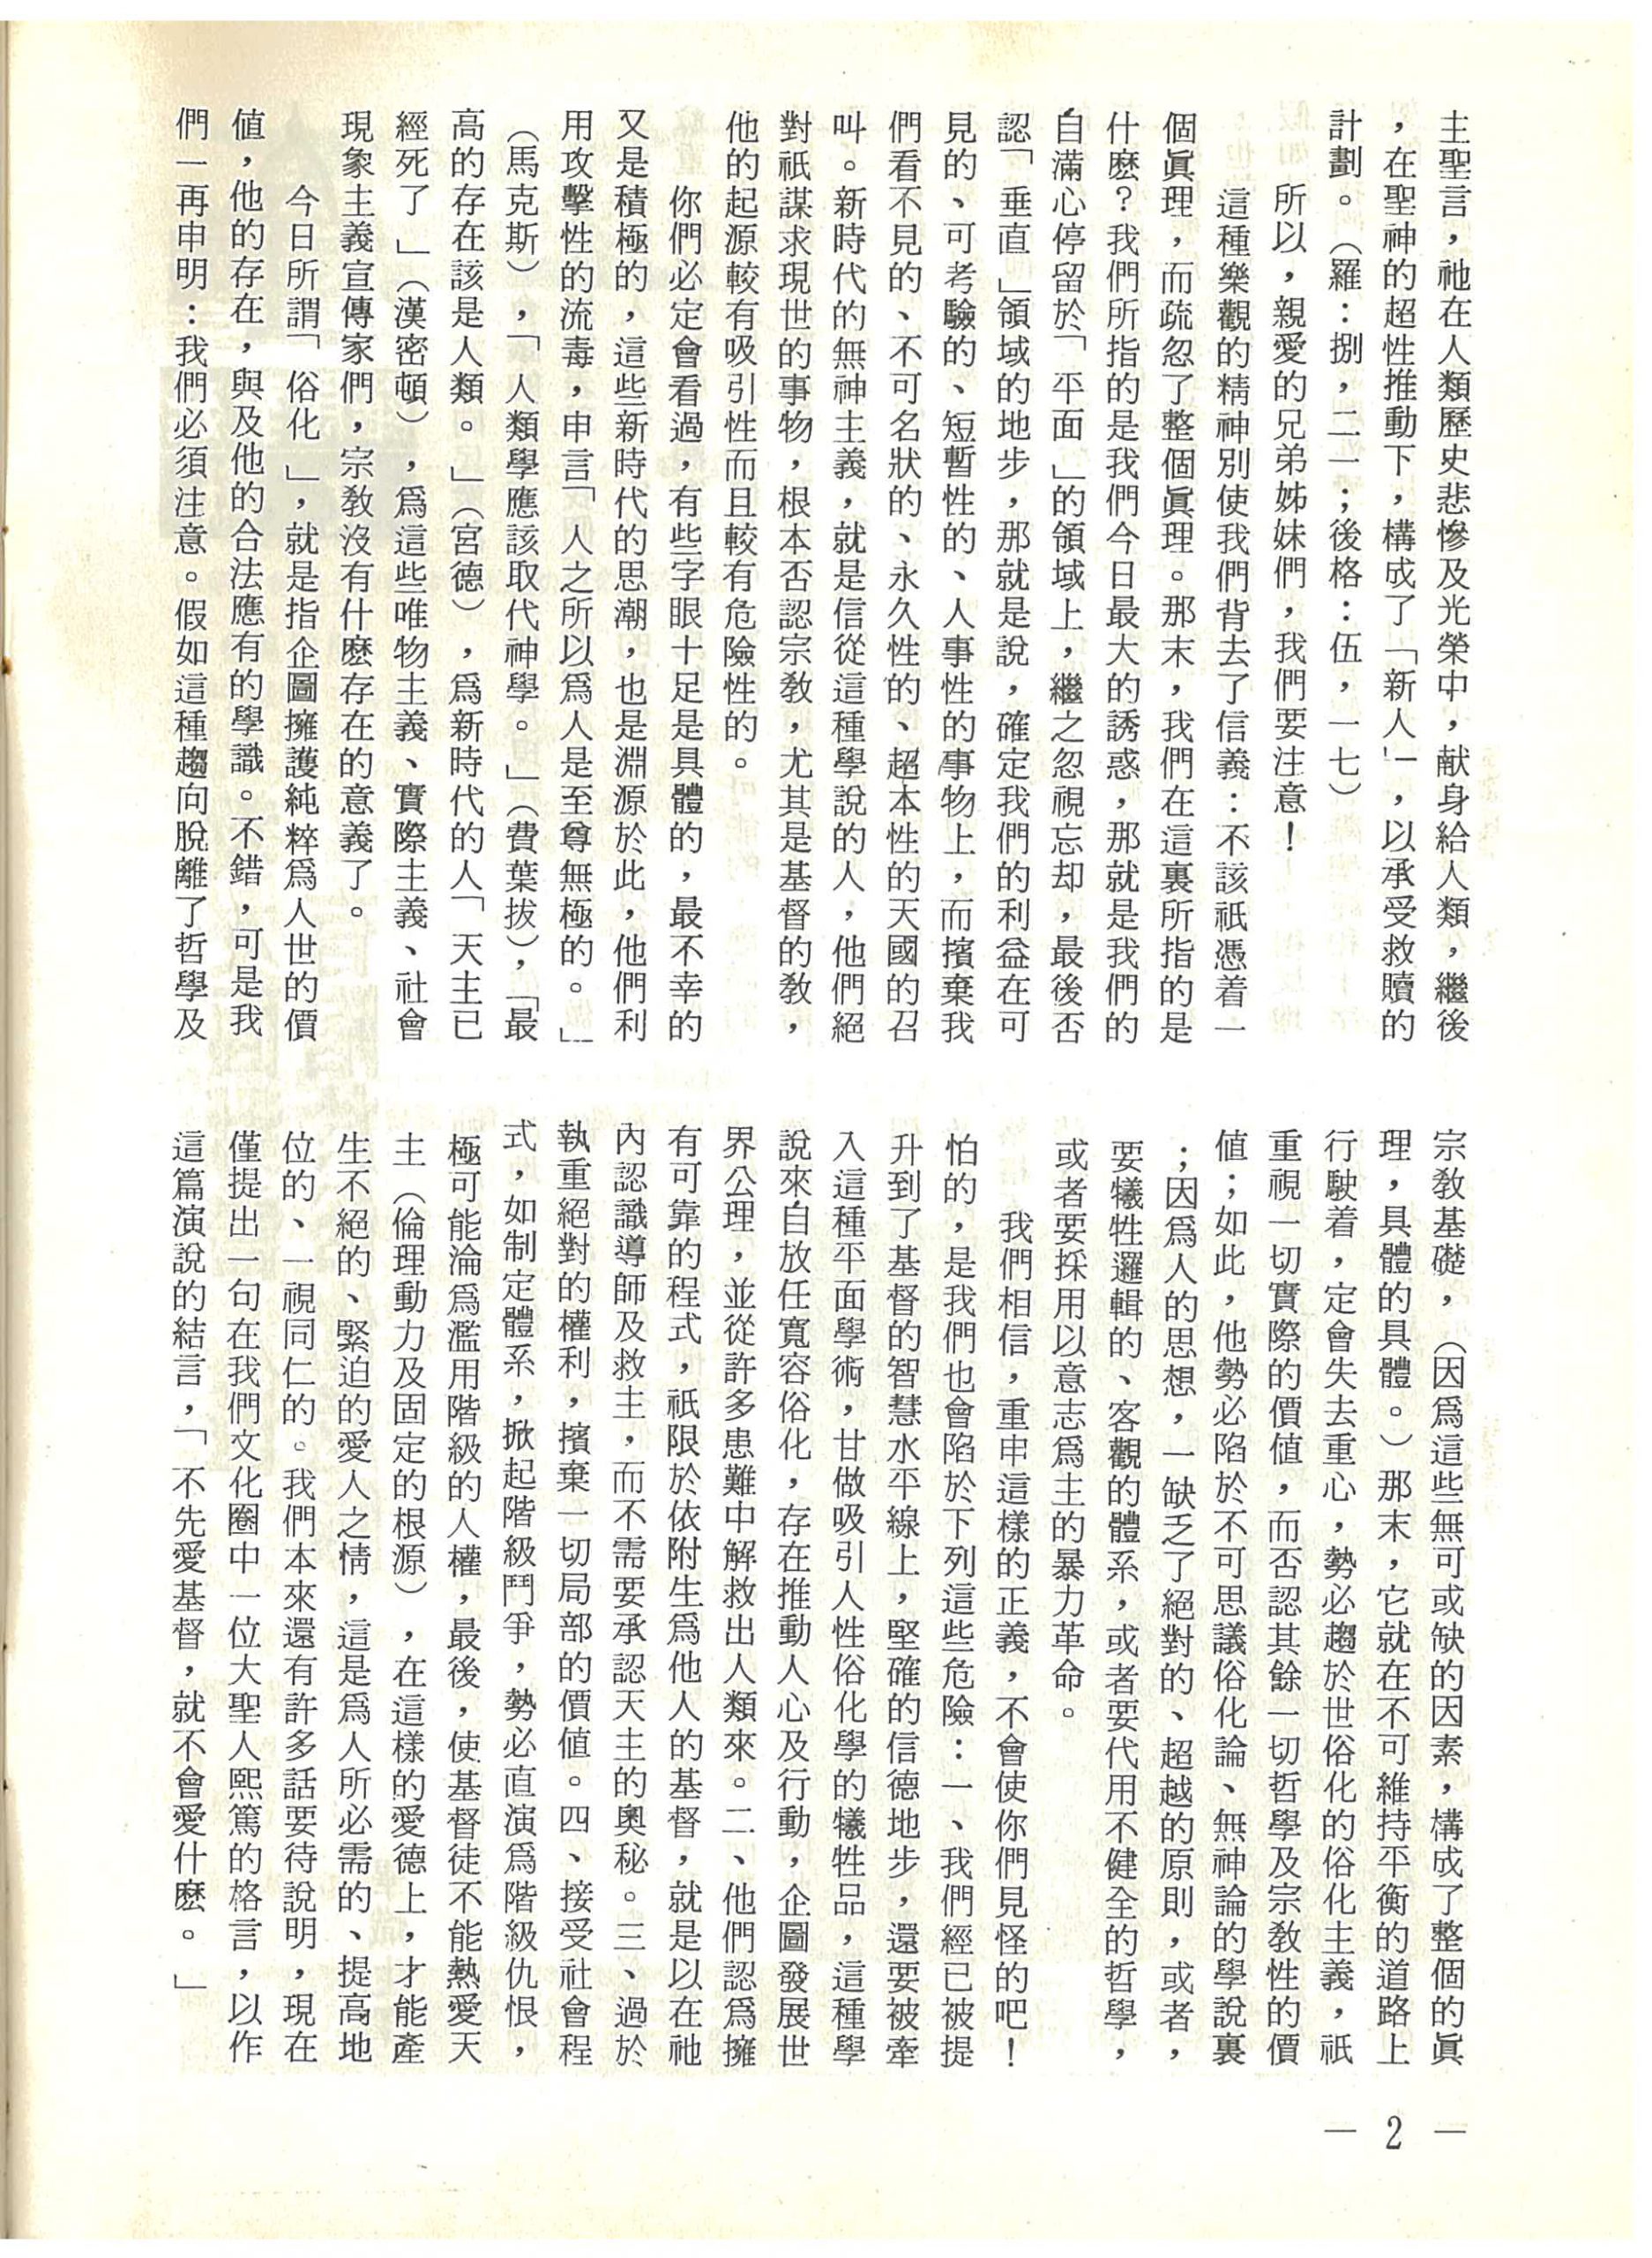 主聖言，祂在人類歷史悲慘及光榮中，献身給人類，繼後
，在聖神的超性推動下，構成了「新人」一，以承受救贖的
計劃。（羅：捌，二一；後格：伍，一七）
所以，親愛的兄弟姊妹們，我們要注意！
這種樂觀的精神別使我們背去了信義：不該祇憑着一
個眞理，而疏忽了整個眞理。那末，我們在這裏所指的是
什麽？我們所指的是我們今日最大的誘惑，那就是我們的
自滿心停留於「平面」的領域上，繼之忽視忘却，最後否
認「垂直」領域的地步，那就是說，確定我們的利益在可
見的、可考驗的、短暫性的、人事性的事物上，而擯棄我
們看不見的、不可名狀的、永久性的、超本性的天國的召
叫。新時代的無神主義，就是信從這種學說的人，他們絕
對祇謀求現世的事物，根本否認宗敎，尤其是基督的敎，
他的起源較有吸引性而且較有危險性的。
你們必定會看過，有些字眼十足是具體的，最不幸的
又是積極的，這些新時代的思潮，也是淵源於此，他們利
用攻擊性的流毒，申言「人之所以爲人是至尊無極的。」
（馬克斯），「人類學應該取代神學。」（費葉拔），「最
高的存在該是人類。」（宮德），爲新時代的人「天主已
經死了」（漢密頓），爲這些唯物主義、實際主義、社會
現象主義宣傳家們，宗敎沒有什麽存在的意義了。
今日所謂「俗化」，就是指企圖擁護純粹爲人世的價
値，他的存在，與及他的合法應有的學識。不錯，可是我
們一再申明：我們必須注意。假如這種趨向脫離了哲學及
宗敎基礎，（因爲這些無可或缺的因素，構成了整個的眞
理，具體的具體。）那末，它就在不可維持平衡的道路上
行駛着，定會失去重心，勢必趨於世俗化的俗化主義，祇
重視一切實際的價値，而否認其餘一切哲學及宗敎性的價
値；如此，他勢必陷於不可思議俗化論、無神論的學說裏
；因爲人的思想，一缺乏了絕對的、超越的原則，或者，
要犧牲邏輯的、客觀的體系，或者要代用不健全的哲學，
或者要採用以意志爲主的暴力革命。
我們相信，重申這樣的正義，不會使你們見怪的吧！
怕的，是我們也會陷於下列這些危險：一、我們經已被提
升到了基督的智慧水平線上，堅確的信德地步，還要被牽
入這種平面學術，甘做吸引人性俗化學的犧牲品，這種學
說來自放任寬容俗化，存在推動人心及行動，企圖發展世
界公理，並從許多患難中解救出人類來。二、他們認爲擁
有可靠的程式，祇限於依附生爲他人的基督，就是以在祂
內認識導師及救主，而不需要承認天主的奧秘。三、過於
執重絕對的權利，擯棄一切局部的價値。四、接受社會程
式，如制定體系，掀起階級鬥爭，勢必直演爲階級仇恨，
極可能淪爲濫用階級的人權，最後，使基督徒不能熱愛天
主（倫理動力及固定的根源），在這樣的愛德上，才能產
生不絕的、緊迫的愛人之情，這是爲人所必需的、提高地
位的、一視同仁的。。我們本來還有許多話要待說明，現在
僅提出一句在我們文化圈中一位大聖人熙篤的格言，以作
這篇演說的結言，「不先愛基督，就不會愛什麽。」
— 2 —